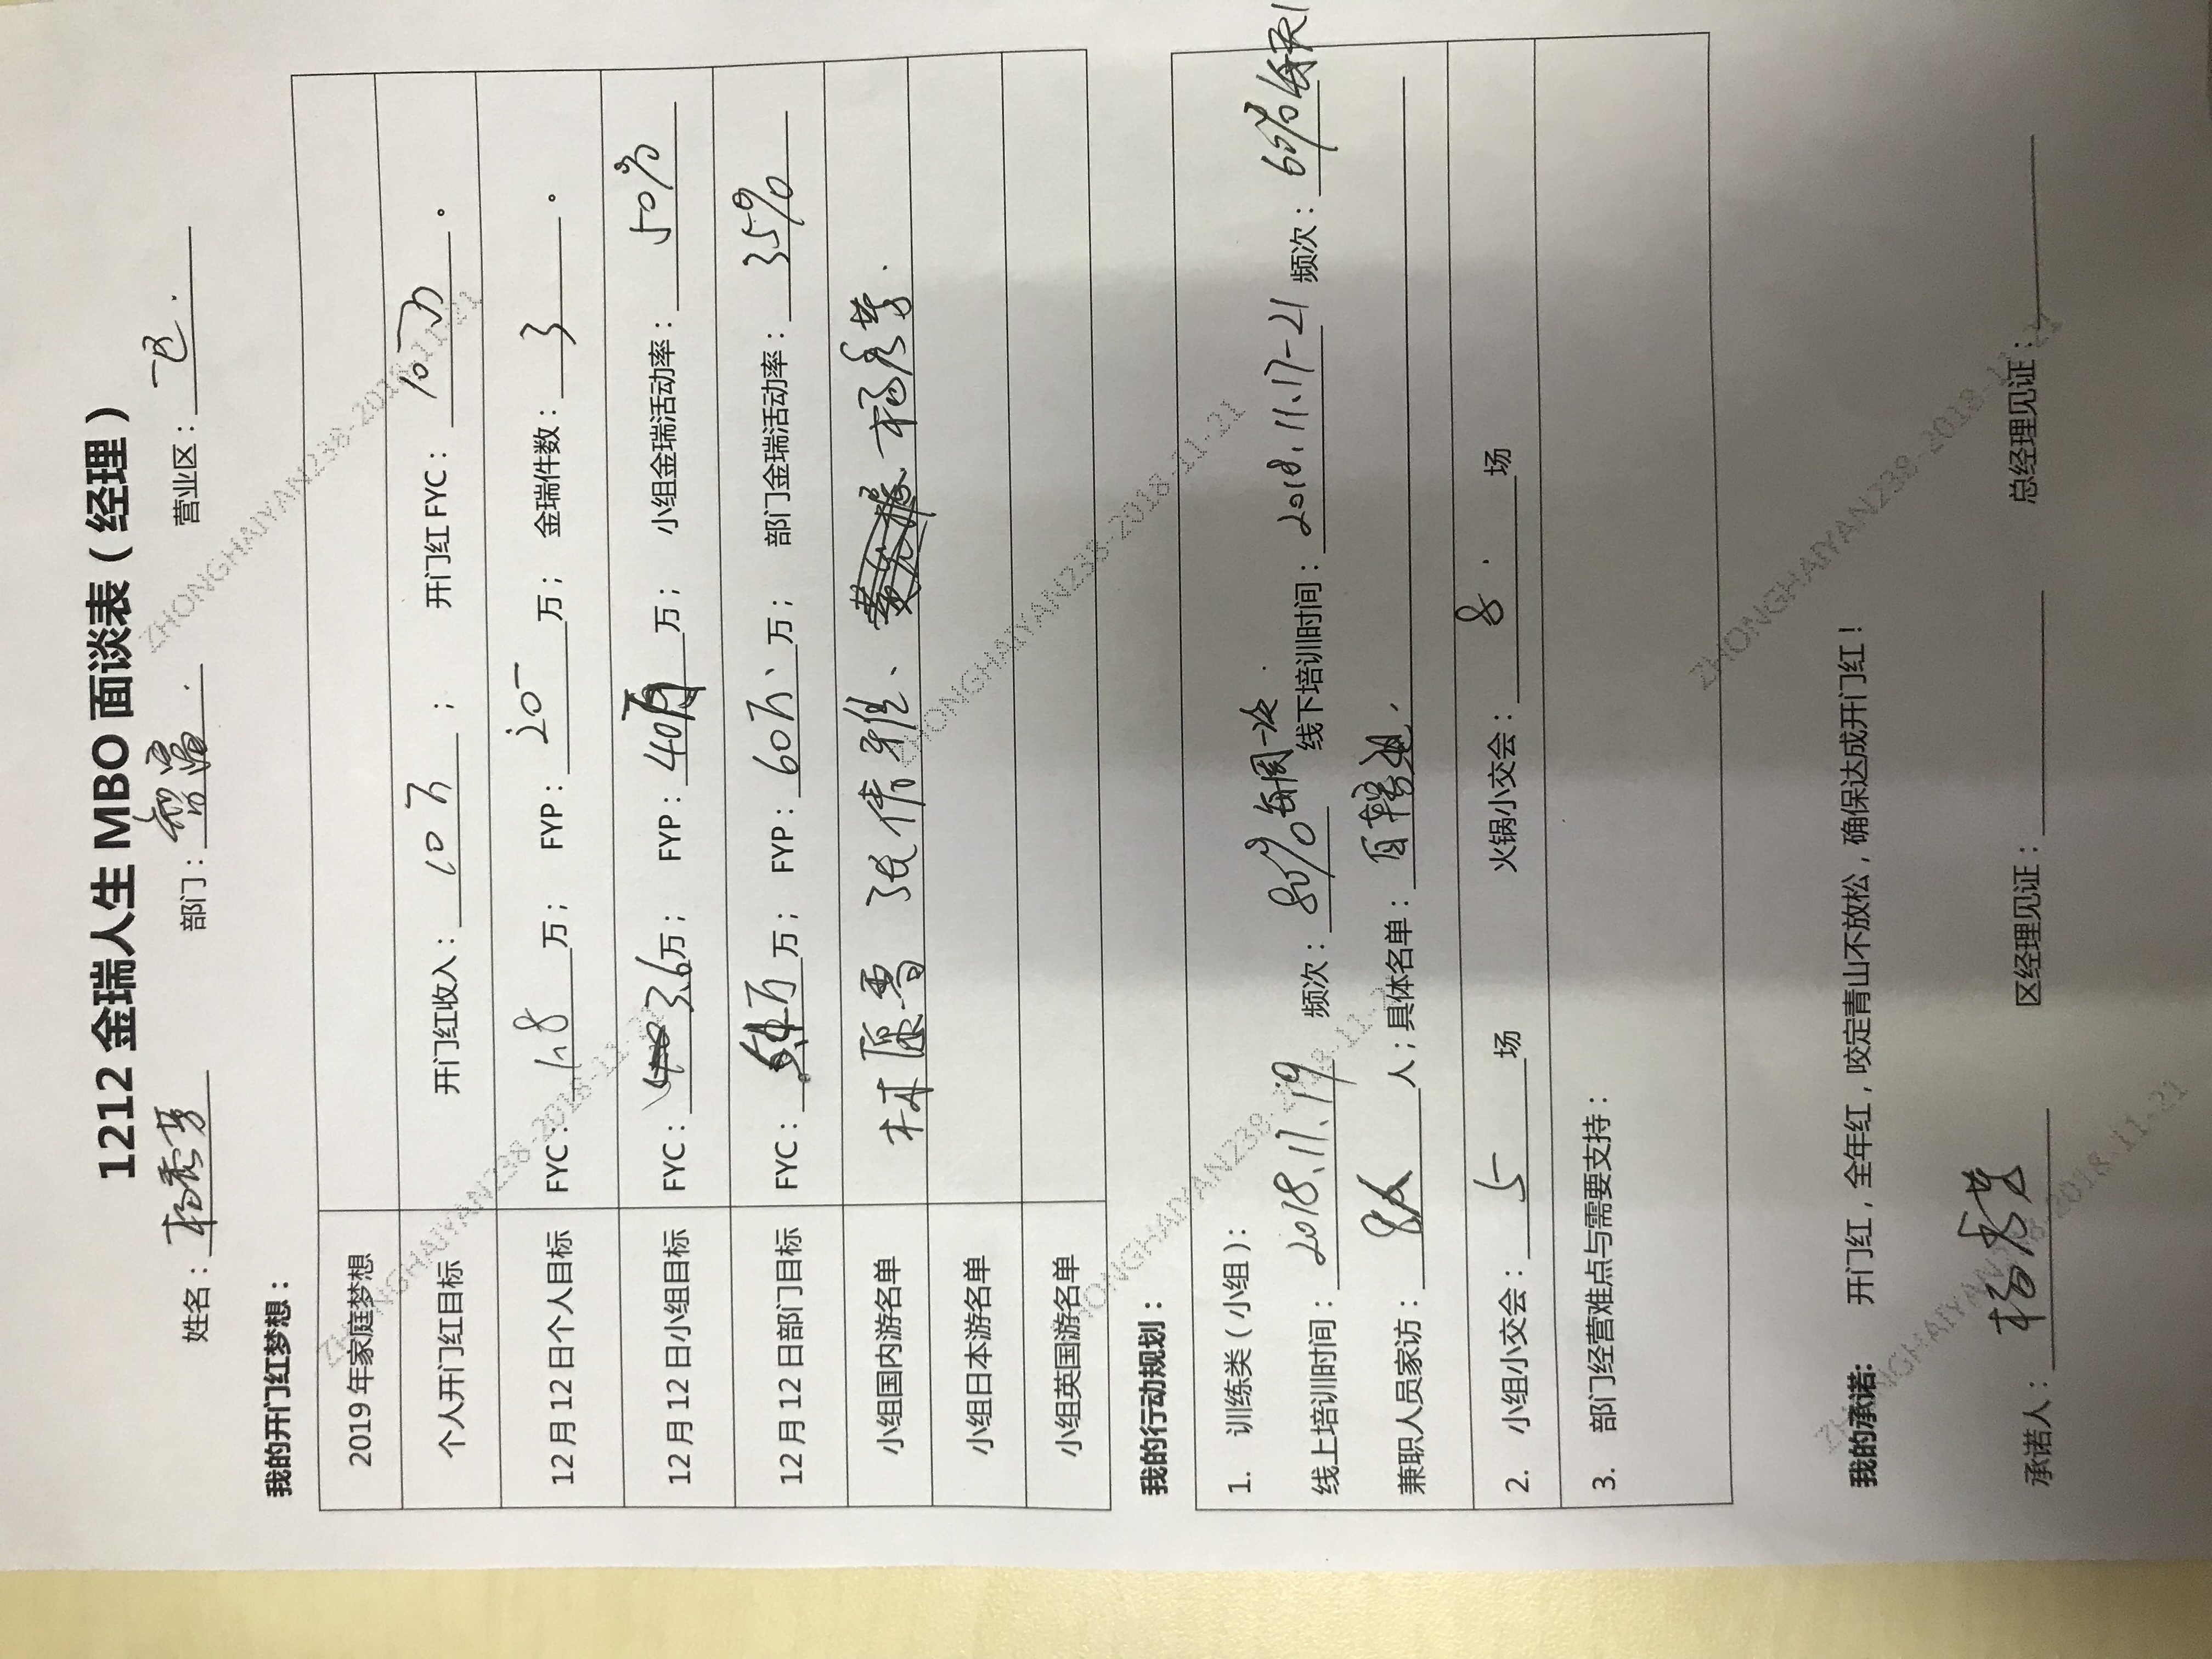 1212 金瑞人生 MBO 面谈表（经理）
姓名： 部门： 营业区：
我的开门红梦想：
2019 年家庭梦想
个人开门红目标 开门红收入：10万； 开门红 FYC：10万。
12 月 12 日个人目标 FYC：1.8万； FYP：20万； 金瑞件数：3。
12 月 12 日小组目标 FYC：3.6万； FYP：40万万； 小组金瑞活动率：50%
12 月 12 日部门目标 FYC：万万； FYP：60万、万； 部门金瑞活动率：35%
小组国内游名单
小组日本游名单
小组英国游名单
我的行动规划：
1. 训练类（小组）：
线上培训时间：2018.11.19 频次：80% 每周一次 线下培训时间：2018.11.17-21 频次：60%
兼职人员家访：8人人；具体名单：
2. 小组小交会：5场 火锅小交会：8.场
3. 部门经营难点与需要支持：
我的承诺: 开门红，全年红，咬定青山不放松，确保达成开门红！
承诺人： 区经理见证： 总经理见证：
ZHONGHAIYAN238-2018-11-21